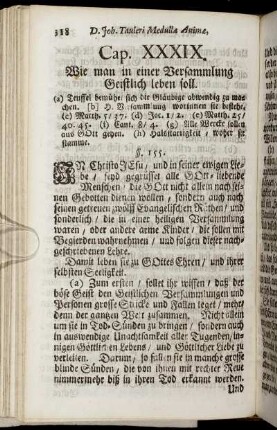 318 D. Joh. Tauleri Medulla Animæ,
Cap. XXXIX.
Wie man in einer Versammlung
Geistlich leben soll.
(a) Teuffel bemühet sich die Gläubige abwendig zu ma-
chen. [b] H. V sammlung worinnen sie bestehe.
(c) Matth. 5/37. (d) Jac. 1/2. (e) Matth. 25/
40. 45. (f) Cant. 8/4. (g) Alle Werck sollen
aus GOtt gehen. (h) Halsstarrigkeit, woher sie
stamme.
§. 155.
IN Christo JEsu, und in seiner ewigen Lie-
be, seyd gegrüsset alle GOtt-liebende
Menschen, die GOtt nicht allein nach sei-
nen Gebotten dienen wollen, sondern auch nach
seinen getreuen zwölff Evangelischen Räthen, und
sonderlich, die in einer heiligen Versammlung
waren, oder andere arme Kinder, die sollen mit
Begierden wahrnehmen, und folgen dieser nach-
geschriebenen Lehre.
Damit leben sie zu GOttes Ehren, und ihrer
selbsten Seeligkeit.
(a) Zum ersten, sollet ihr wissen, daß der
böse Geist den Geistlichen Versammlungen und
Personen grosse Stricke und Fallen leget, mehr
denn der gantzen Welt zusammen. Nicht allein
um sie in Tod-Sünden zu bringen, sondern auch
in auswendige Unachtsamkeit aller Tugenden, in-
nigen Göttlichen Lebens, und Göttlicher Liebe zu
verleiten. Darum, so fallen sie in manche grosse
blinde Sünden, die von ihnen mit rechter Reue
nimmermehr biß in ihren Tod erkannt werden.
Und